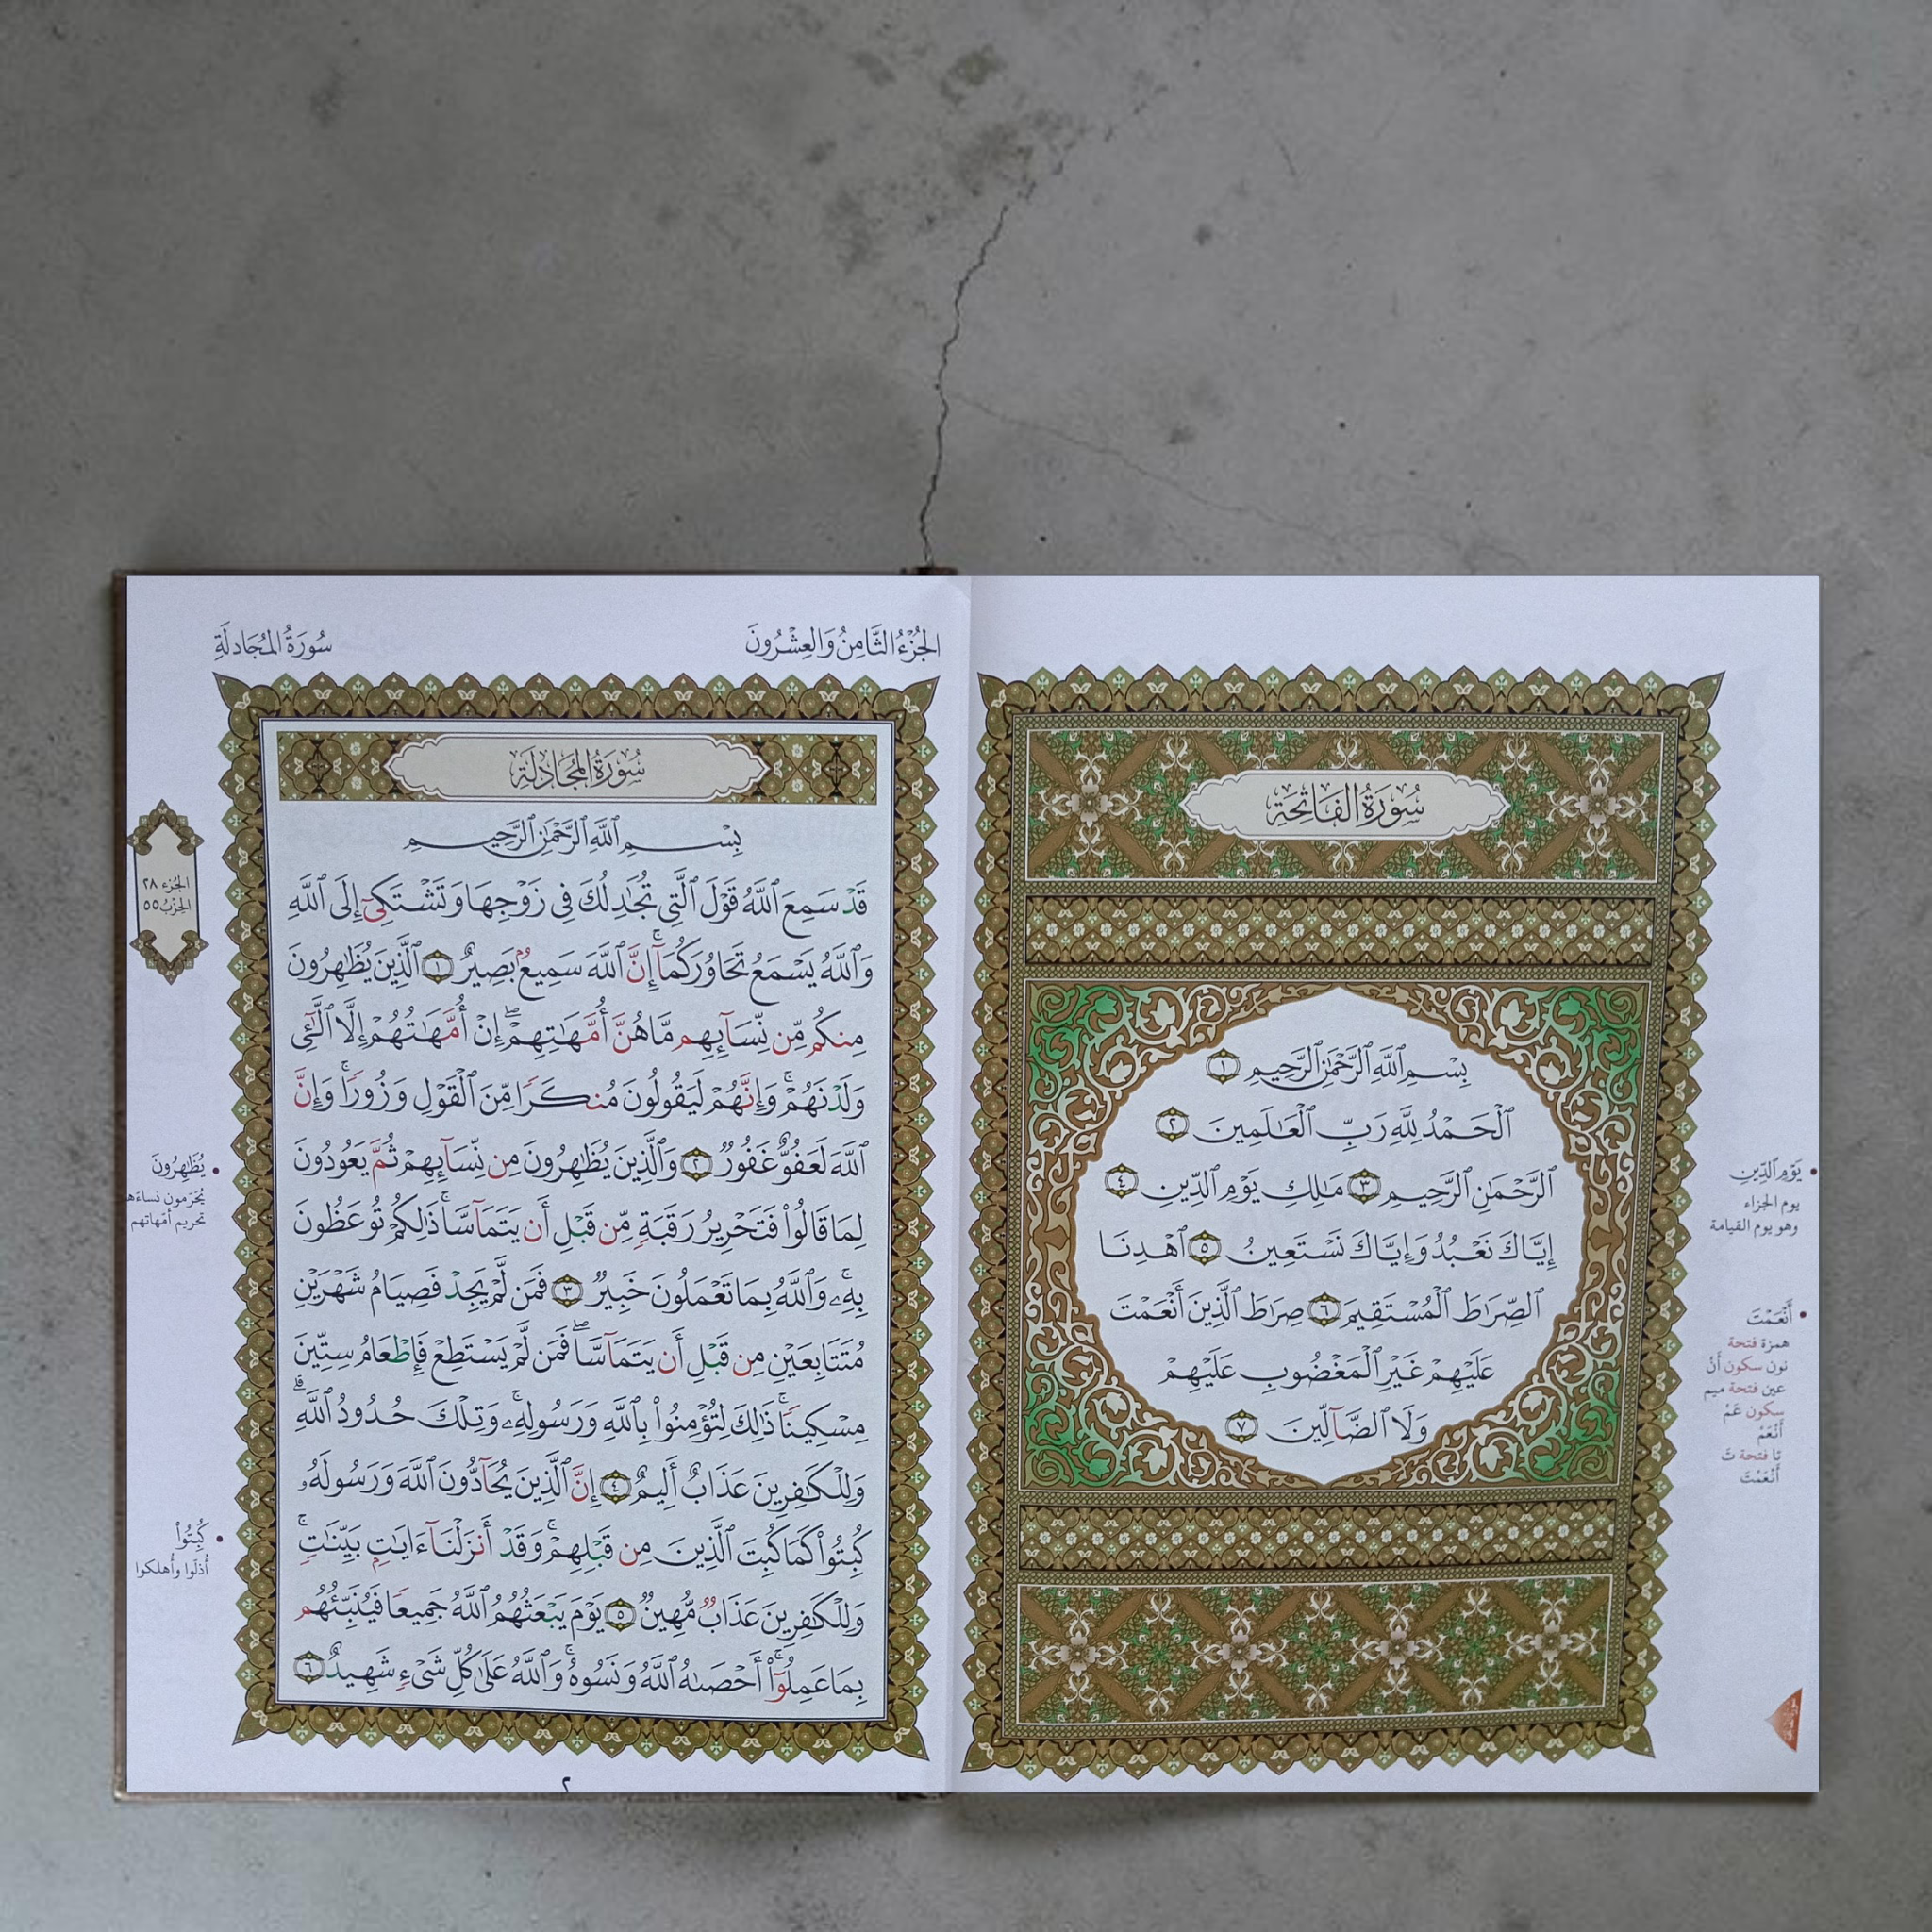 سُورَةُ الفَاتِحَةِ
بِسْمِ ٱللَّهِ ٱلرَّحْمَٰنِ ٱلرَّحِيمِ ١
ٱلْحَمْدُ لِلَّهِ رَبِّ ٱلْعَٰلَمِينَ ٢
ٱلرَّحْمَٰنِ ٱلرَّحِيمِ ٣ مَٰلِكِ يَوْمِ ٱلدِّينِ ٤
إِيَّاكَ نَعْبُدُ وَإِيَّاكَ نَسْتَعِينُ ٥ ٱهْدِنَا
ٱلصِّرَٰطَ ٱلْمُسْتَقِيمَ ٦ صِرَٰطَ ٱلَّذِينَ أَنْعَمْتَ
عَلَيْهِمْ غَيْرِ ٱلْمَغْضُوبِ عَلَيْهِمْ
وَلَا ٱلضَّآلِّينَ ٧
يَوْمِ ٱلدِّينِ
يوم الجزاء
وهو يوم القيامة
أَنْعَمْتَ
همزة فتحة
نون سكون أَنْ
عين فتحة ميم
سكون عَمْ
أَنْعَمْ
تا فتحة تَ
أَنْعَمْتَ
الجُزْءُ الثَّامِنُ وَالعِشْرُونَ
سُورَةُ المُجَادلَةِ
سُورَةُ المُجَادلَةِ
بِسْمِ ٱللَّهِ ٱلرَّحْمَٰنِ ٱلرَّحِيمِ
قَدْ سَمِعَ ٱللَّهُ قَوْلَ ٱلَّتِي تُجَٰدِلُكَ فِي زَوْجِهَا وَتَشْتَكِىٓ إِلَى ٱللَّهِ
وَٱللَّهُ يَسْمَعُ تَحَاوُرَكُمَآ ۚ إِنَّ ٱللَّهَ سَمِيعٌۢ بَصِيرٌ ١ ٱلَّذِينَ يُظَٰهِرُونَ
مِنكُم مِّن نِّسَآئِهِم مَّا هُنَّ أُمَّهَٰتِهِمْ ۖ إِنْ أُمَّهَٰتُهُمْ إِلَّا ٱلَّٰٓـِٔي
وَلَدْنَهُمْ ۚ وَإِنَّهُمْ لَيَقُولُونَ مُنكَرًا مِّنَ ٱلْقَوْلِ وَزُورًا ۚ وَإِنَّ
ٱللَّهَ لَعَفُوٌّ غَفُورٌ ٢ وَٱلَّذِينَ يُظَٰهِرُونَ مِن نِّسَآئِهِمْ ثُمَّ يَعُودُونَ
لِمَا قَالُوا۟ فَتَحْرِيرُ رَقَبَةٍ مِّن قَبْلِ أَن يَتَمَآسَّا ۚ ذَٰلِكُمْ تُوعَظُونَ
بِهِۦ ۚ وَٱللَّهُ بِمَا تَعْمَلُونَ خَبِيرٌ ٣ فَمَن لَّمْ يَجِدْ فَصِيَامُ شَهْرَيْنِ
مُتَتَابِعَيْنِ مِن قَبْلِ أَن يَتَمَآسَّا ۖ فَمَن لَّمْ يَسْتَطِعْ فَإِطْعَامُ سِتِّينَ
مِسْكِينًا ۚ ذَٰلِكَ لِتُؤْمِنُوا۟ بِٱللَّهِ وَرَسُولِهِۦ ۚ وَتِلْكَ حُدُودُ ٱللَّهِ ۗ
وَلِلْكَٰفِرِينَ عَذَابٌ أَلِيمٌ ٤ إِنَّ ٱلَّذِينَ يُحَآدُّونَ ٱللَّهَ وَرَسُولَهُۥ
كُبِتُوا۟ كَمَا كُبِتَ ٱلَّذِينَ مِن قَبْلِهِمْ ۚ وَقَدْ أَنزَلْنَآ ءَايَٰتٍۭ بَيِّنَٰتٍ ۚ
وَلِلْكَٰفِرِينَ عَذَابٌ مُّهِينٌ ٥ يَوْمَ يَبْعَثُهُمُ ٱللَّهُ جَمِيعًا فَيُنَبِّئُهُم
بِمَا عَمِلُوٓا۟ ۚ أَحْصَىٰهُ ٱللَّهُ وَنَسُوهُ ۚ وَٱللَّهُ عَلَىٰ كُلِّ شَىْءٍ شَهِيدٌ ٦
الجُزء ٢٨
الحِزْبُ ٥٥
يُظَٰهِرُونَ
يُحَرّمون نساءَه
تحريم أمّهاتهم
كُبِتُوا۟
أُذلّوا وأُهلكوا
٢